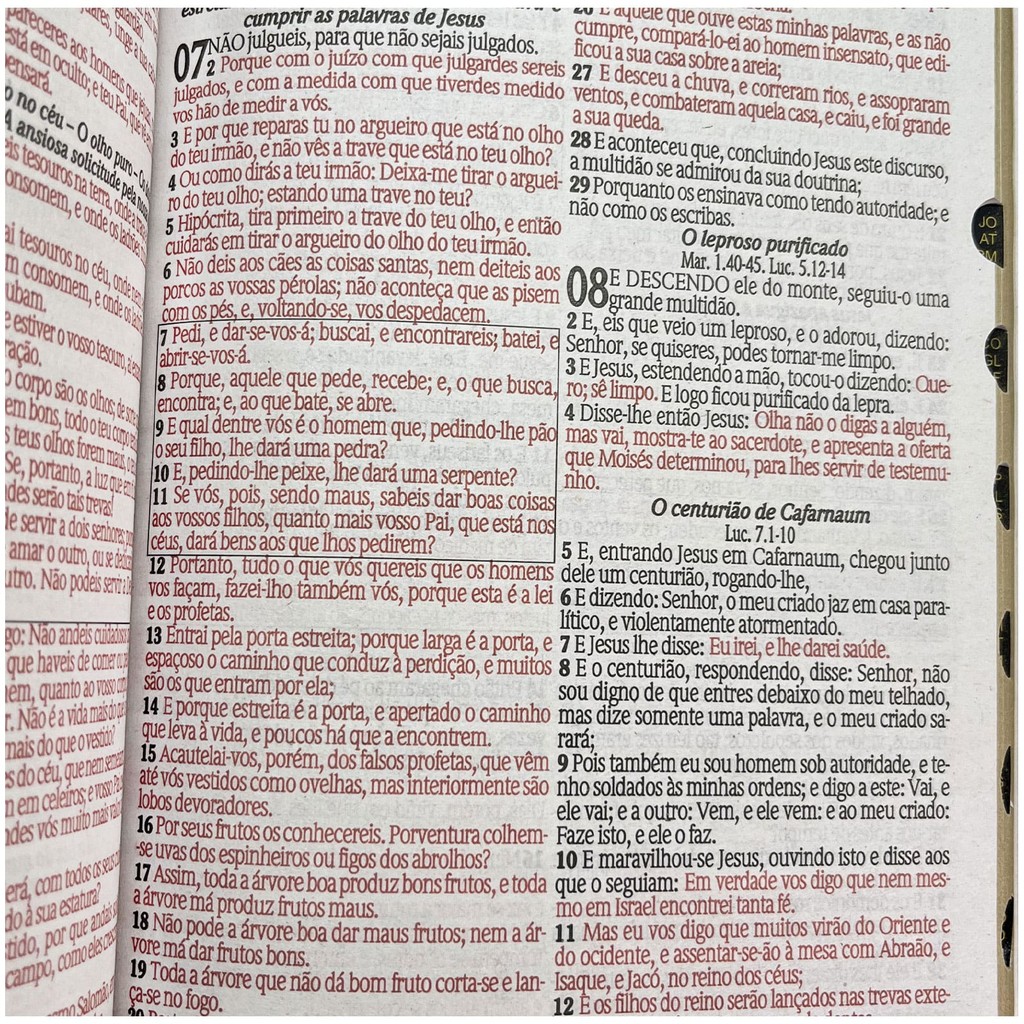 pareceres aos homens que jejuas
está em oculto; e teu Pai, que vê
pensará.
no céu – O olho puro –
A ansiosa solicitude pela
tesouros na terra, onde a
consomem, e onde os ladrões
tesouros no céu, onde nem
consomem, e onde os
estiver o vosso tesouro, aí
corpo são os olhos; de
em bons, todo o teu corpo
teus olhos forem maus, o
Se, portanto, a luz que em
serão tais trevas!
servir a dois senhores;
amar o outro, ou se
outro. Não podeis servir a
Não andeis cuidadosos
que haveis de comer ou
quanto ao vosso
Não é a vida mais do que
mais do que o vestido?
do céu, que nem
em celeiros; e vosso Pai
vós muito mais
com todos os seus
à sua estatura?
por que andais
campo, como eles
Salomão,
cumprir as palavras de Jesus
07 NÃO julgueis, para que não sejais julgados.
2 Porque com o juízo com que julgardes sereis
julgados, e com a medida com que tiverdes medido
vos hão de medir a vós.
3 E por que reparas tu no argueiro que está no olho
do teu irmão, e não vês a trave que está no teu olho?
4 Ou como dirás a teu irmão: Deixa-me tirar o arguei-
ro do teu olho; estando uma trave no teu?
5 Hipócrita, tira primeiro a trave do teu olho, e então
cuidarás em tirar o argueiro do olho do teu irmão.
6 Não deis aos cães as coisas santas, nem deiteis aos
porcos as vossas pérolas; não aconteça que as pisem
com os pés, e, voltando-se, vos despedacem.
7 Pedi, e dar-se-vos-á; buscai, e encontrareis; batei, e
abrir-se-vos-á.
8 Porque, aquele que pede, recebe; e, o que busca,
encontra; e, ao que bate, se abre.
9 E qual dentre vós é o homem que, pedindo-lhe pão
o seu filho, lhe dará uma pedra?
10 E, pedindo-lhe peixe, lhe dará uma serpente?
11 Se vós, pois, sendo maus, sabeis dar boas coisas
aos vossos filhos, quanto mais vosso Pai, que está nos
céus, dará bens aos que lhos pedirem?
12 Portanto, tudo o que vós quereis que os homens
vos façam, fazei-lho também vós, porque esta é a lei
e os profetas.
13 Entrai pela porta estreita; porque larga é a porta, e
espaçoso o caminho que conduz à perdição, e muitos
são os que entram por ela;
14 E porque estreita é a porta, e apertado o caminho
que leva à vida, e poucos há que a encontrem.
15 Acautelai-vos, porém, dos falsos profetas, que vêm
até vós vestidos como ovelhas, mas interiormente são
lobos devoradores.
16 Por seus frutos os conhecereis. Porventura colhem-
-se uvas dos espinheiros ou figos dos abrolhos?
17 Assim, toda a árvore boa produz bons frutos, e toda
a árvore má produz frutos maus.
18 Não pode a árvore boa dar maus frutos; nem a ár-
vore má dar frutos bons.
19 Toda a árvore que não dá bom fruto corta-se e lan-
ça-se no fogo.
26 E aquele que ouve estas minhas palavras, e as não
cumpre, compará-lo-ei ao homem insensato, que edi-
ficou a sua casa sobre a areia;
27 E desceu a chuva, e correram rios, e assopraram
ventos, e combateram aquela casa, e caiu, e foi grande
a sua queda.
28 E aconteceu que, concluindo Jesus este discurso,
a multidão se admirou da sua doutrina;
29 Porquanto os ensinava como tendo autoridade; e
não como os escribas.
O leproso purificado
Mar. 1.40-45. Luc. 5.12-14
08 E DESCENDO ele do monte, seguiu-o uma
grande multidão.
2 E, eis que veio um leproso, e o adorou, dizendo:
Senhor, se quiseres, podes tornar-me limpo.
3 E Jesus, estendendo a mão, tocou-o dizendo: Que-
ro; sê limpo. E logo ficou purificado da lepra.
4 Disse-lhe então Jesus: Olha não o digas a alguém,
mas vai, mostra-te ao sacerdote, e apresenta a oferta
que Moisés determinou, para lhes servir de testemu-
nho.
O centurião de Cafarnaum
Luc. 7.1-10
5 E, entrando Jesus em Cafarnaum, chegou junto
dele um centurião, rogando-lhe,
6 E dizendo: Senhor, o meu criado jaz em casa para-
lítico, e violentamente atormentado.
7 E Jesus lhe disse: Eu irei, e lhe darei saúde.
8 E o centurião, respondendo, disse: Senhor, não
sou digno de que entres debaixo do meu telhado,
mas dize somente uma palavra, e o meu criado sa-
rará;
9 Pois também eu sou homem sob autoridade, e te-
nho soldados às minhas ordens; e digo a este: Vai, e
ele vai; e a outro: Vem, e ele vem: e ao meu criado:
Faze isto, e ele o faz.
10 E maravilhou-se Jesus, ouvindo isto e disse aos
que o seguiam: Em verdade vos digo que nem mes-
mo em Israel encontrei tanta fé.
11 Mas eu vos digo que muitos virão do Oriente e
do ocidente, e assentar-se-ão à mesa com Abraão, e
Isaque, e Jacó, no reino dos céus;
12 E os filhos do reino serão lançados nas trevas exte-
JO
AT